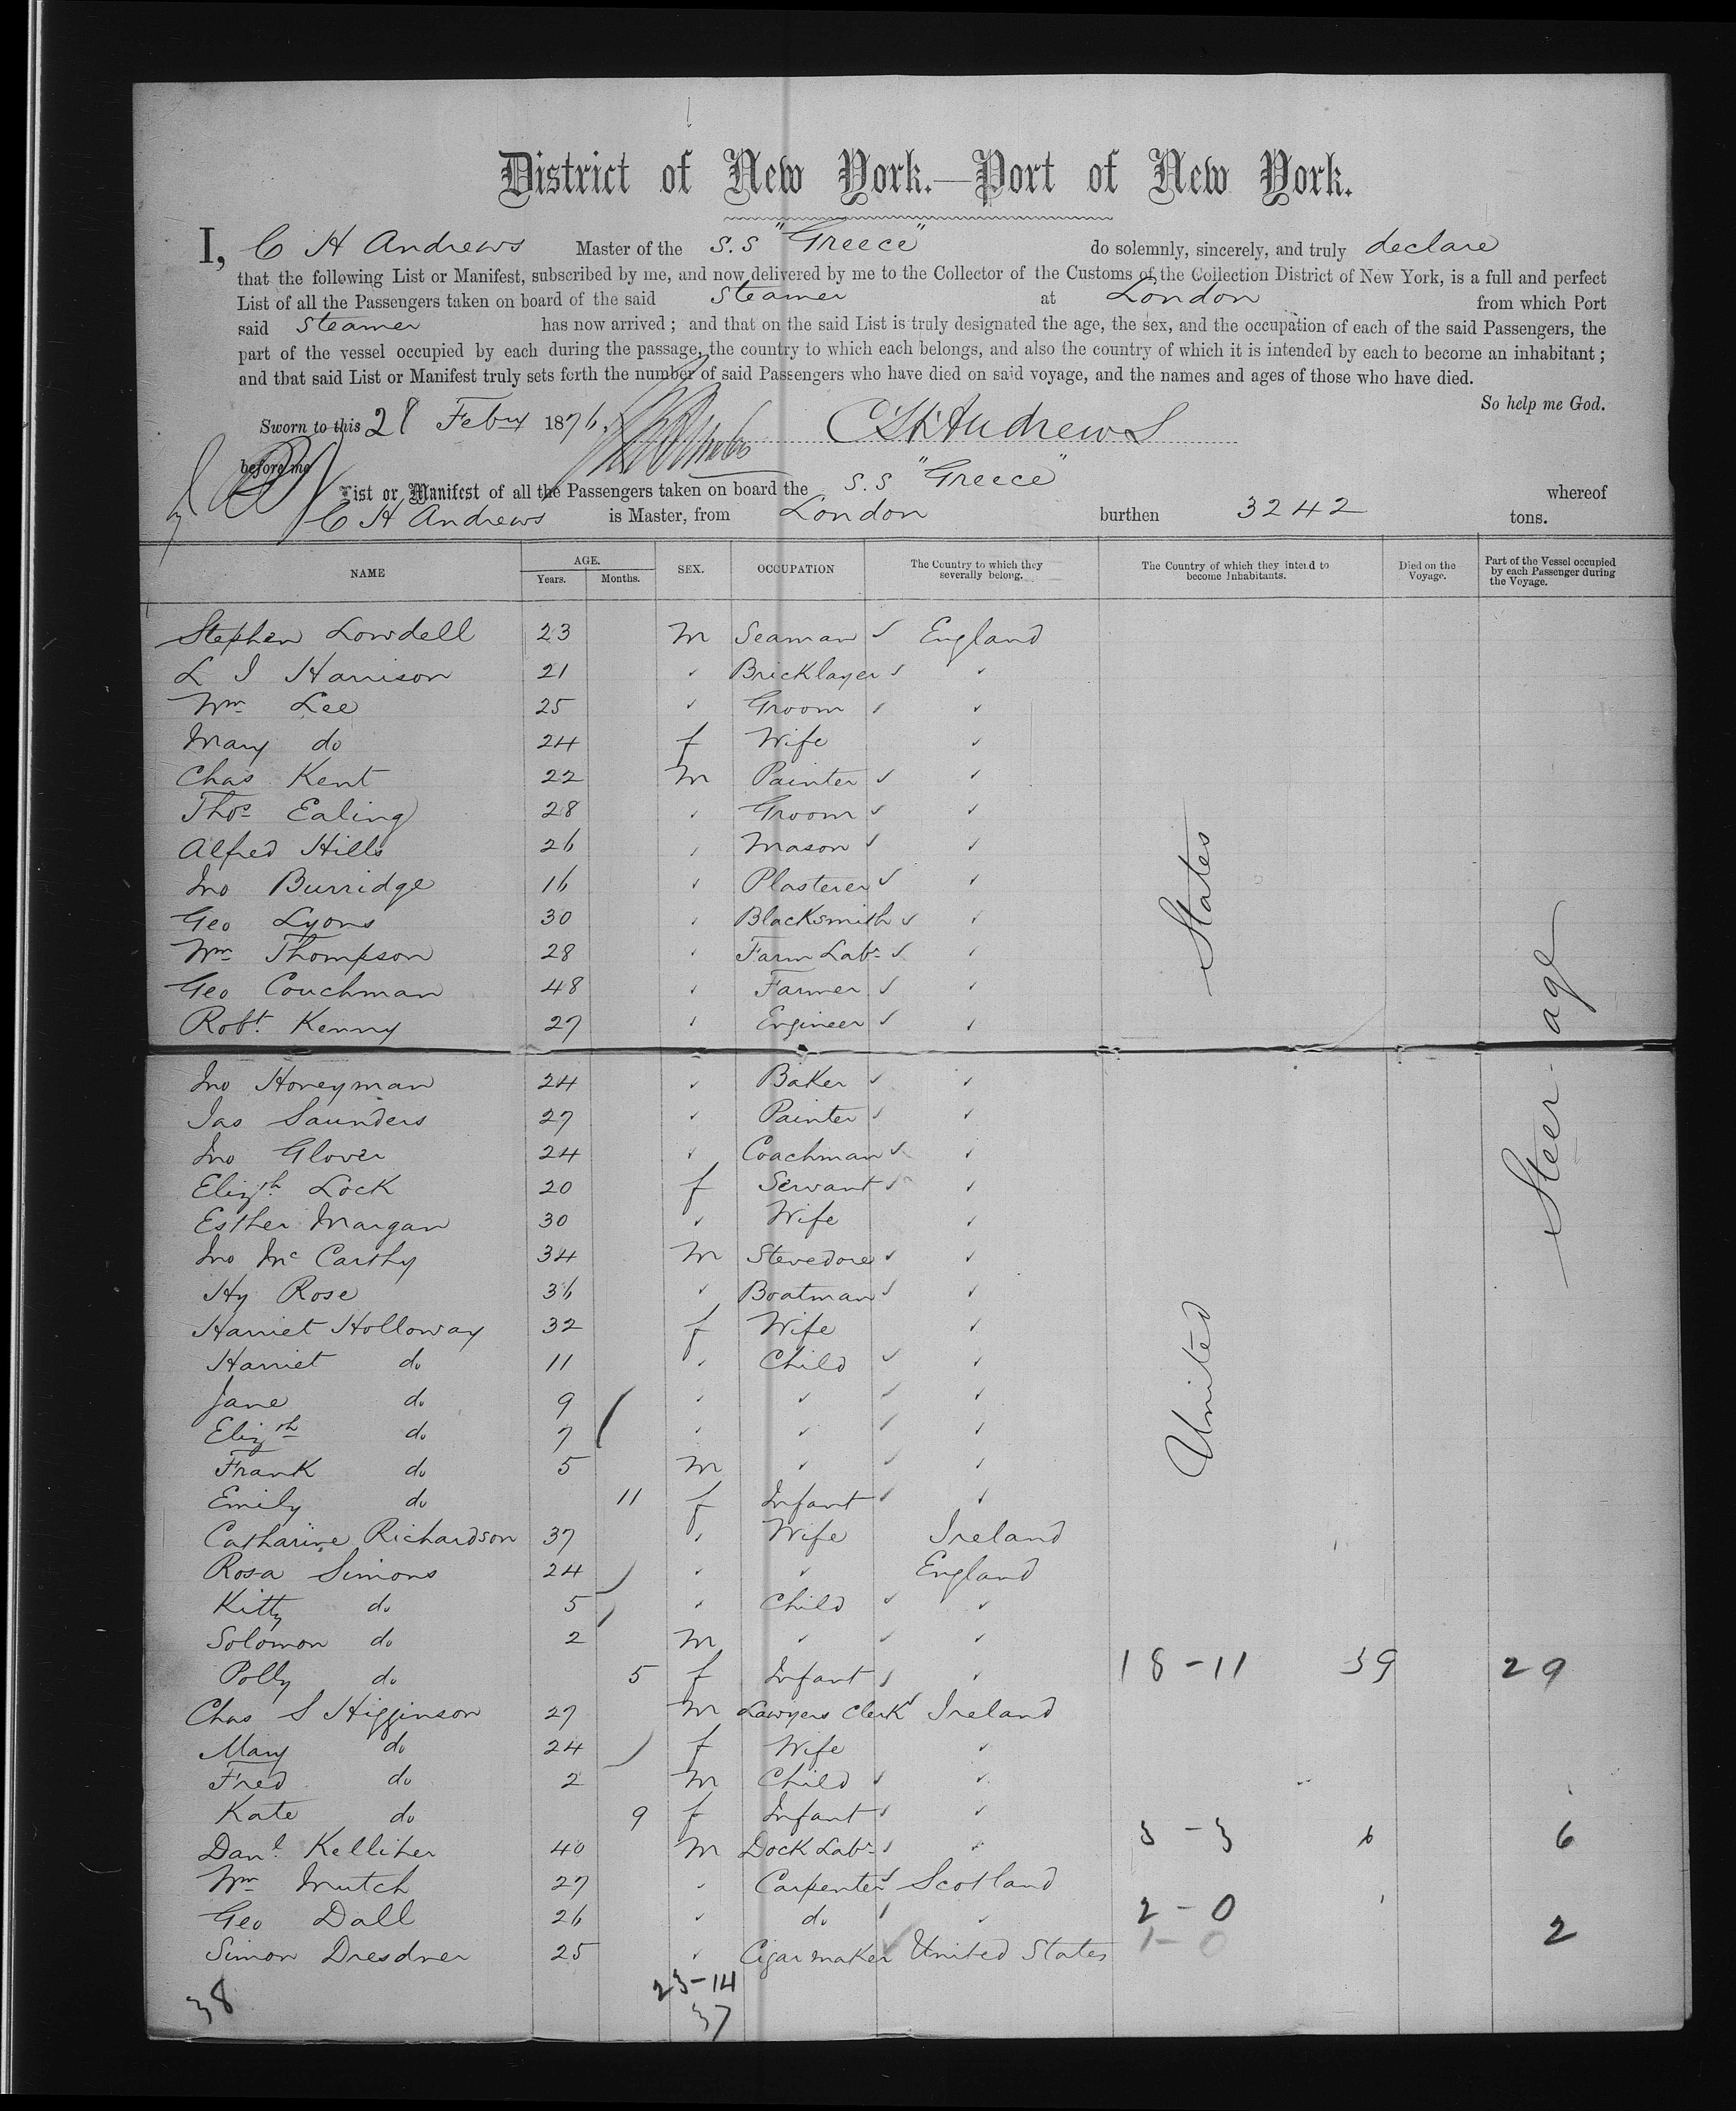 District of New York.—Port of New York.
I, C H Andrews Master of the S.S "Greece" do solemnly, sincerely, and truly declare
that the following List or Manifest, subscribed by me, and now delivered by me to the Collector of the Customs of the Collection District of New York, is a full and perfect
List of all the Passengers taken on board of the said Steamer at London from which Port
said Steamer has now arrived; and that on the said List is truly designated the age, the sex, and the occupation of each of the said Passengers, the
part of the vessel occupied by each during the passage, the country to which each belongs, and also the country of which it is intended by each to become an inhabitant;
and that said List or Manifest truly sets forth the number of said Passengers who have died on said voyage, and the names and ages of those who have died.
So help me God.
Sworn to this 28 Feby 1876. C H Andrews
before me
List or Manifest of all the Passengers taken on board the S.S "Greece" whereof
C H Andrews is Master, from London burthen 3242 tons.
NAME AGE. Years. Months. SEX. OCCUPATION The Country to which they severally belong. The Country of which they intend to become Inhabitants. Died on the Voyage. Part of the Vessel occupied by each Passenger during the Voyage.
Stephen Lowdell 23 M Seaman ✓ England
L I Harrison 21 ✓ Bricklayer ✓ ✓
Wm Lee 25 ✓ Groom ✓ ✓
Mary do 24 f Wife ✓
Chas Kent 22 M Painter ✓ ✓
Thos Ealing 28 ✓ Groom ✓ ✓
Alfred Hills 26 ✓ Mason ✓ ✓
Jno Burridge 16 ✓ Plasterer ✓ ✓
Geo Lyons 30 ✓ Blacksmith ✓ ✓
Wm Thompson 28 ✓ Farm Labr ✓ ✓
Geo Couchman 48 ✓ Farmer ✓ ✓
Robt. Kenny 27 ✓ Engineer ✓ ✓
Jno Honeyman 24 ✓ Baker ✓ ✓
Jas Saunders 27 ✓ Painter ✓ ✓
Jno Glover 24 ✓ Coachman ✓ ✓
Elizth Lock 20 f Servant ✓ ✓
Esther Margan 30 ✓ Wife ✓
Jno McCarthy 34 M Stevedore ✓ ✓
Hy Rose 36 ✓ Boatman ✓ ✓
Harriet Holloway 32 f Wife ✓
Harriet do 11 ✓ Child ✓ ✓
Jane do 9 ✓ ✓ ✓ ✓
Elizth do 7 ✓ ✓ ✓ ✓
Frank do 5 M ✓ ✓ ✓
Emily do 11 f Infant ✓ ✓
Catharine Richardson 37 ✓ Wife Ireland
Rosa Simons 24 ✓ ✓ England
Kitty do 5 ✓ Child ✓ ✓
Solomon do 2 M ✓ ✓ ✓
Polly do 5 f Infant ✓ ✓ 18-11 29
Chas S Higginson 27 M Lawyers Clerk ✓ Ireland
Mary do 24 f Wife ✓
Fred do 2 M Child ✓ ✓
Kate do 9 f Infant ✓ ✓
Danl. Kelliher 40 M Dock Labr ✓ ✓ 3-3 6 6
Wm Mutch 27 ✓ Carpenter ✓ Scotland
Geo Dall 26 ✓ do ✓ ✓ 2-0 2
Simon Dresdner 25 ✓ Cigar maker ✓ United States 1-0
United States
Steer-age
38
23-14
37